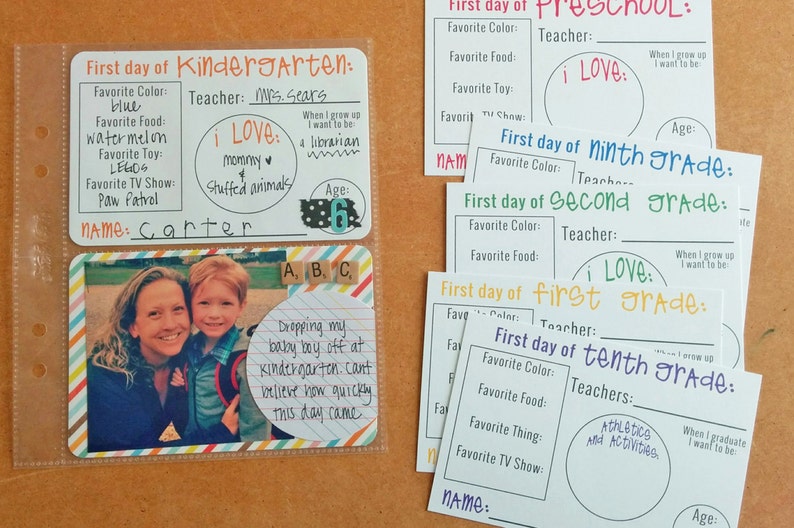 First day of Kindergarten:
Favorite Color:
blue
Favorite Food:
watermelon
Favorite Toy:
LEGOs
Favorite TV Show:
Paw Patrol
Teacher: Mrs. Sears
i LOVE:
mommy
&
stuffed animals
When I grow up
I want to be:
a librarian
Age:
6
NAME: Carter
A B C
Dropping my
baby boy off at
kindergarten. Cant
believe how quickly
this day came
First day of PRESCHOOL:
Favorite Color:
Favorite Food:
Favorite Toy:
Favorite TV Show:
Teacher:
i LOVE:
When I grow up
I want to be:
Age:
NAME:
First day of NINTH GRADE:
Favorite Color:
First day of SECOND GRADE:
Favorite Color:
Favorite Food:
Teacher:
i LOVE:
When I grow up
I want to be:
First day of first GRADE:
Teacher:
When I grow up
First day of TENTH GRADE:
Favorite Color:
Favorite Food:
Favorite Thing:
Favorite TV Show:
Teachers:
ATHLETICS
AND ACTIVITIES:
When I graduate
I want to be:
Age:
NAME: